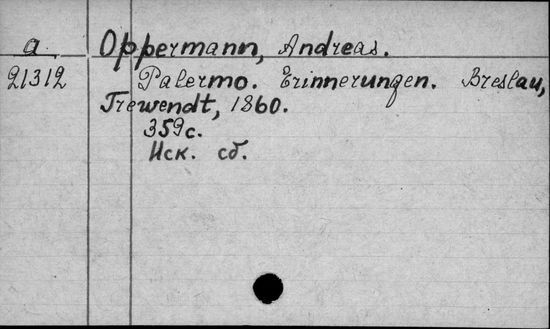 a Oppermann, Andreas.
21312 Palermo. Erinnerungen. Breslau,
Trewendt, 1860.
359c.
Иск. сб.